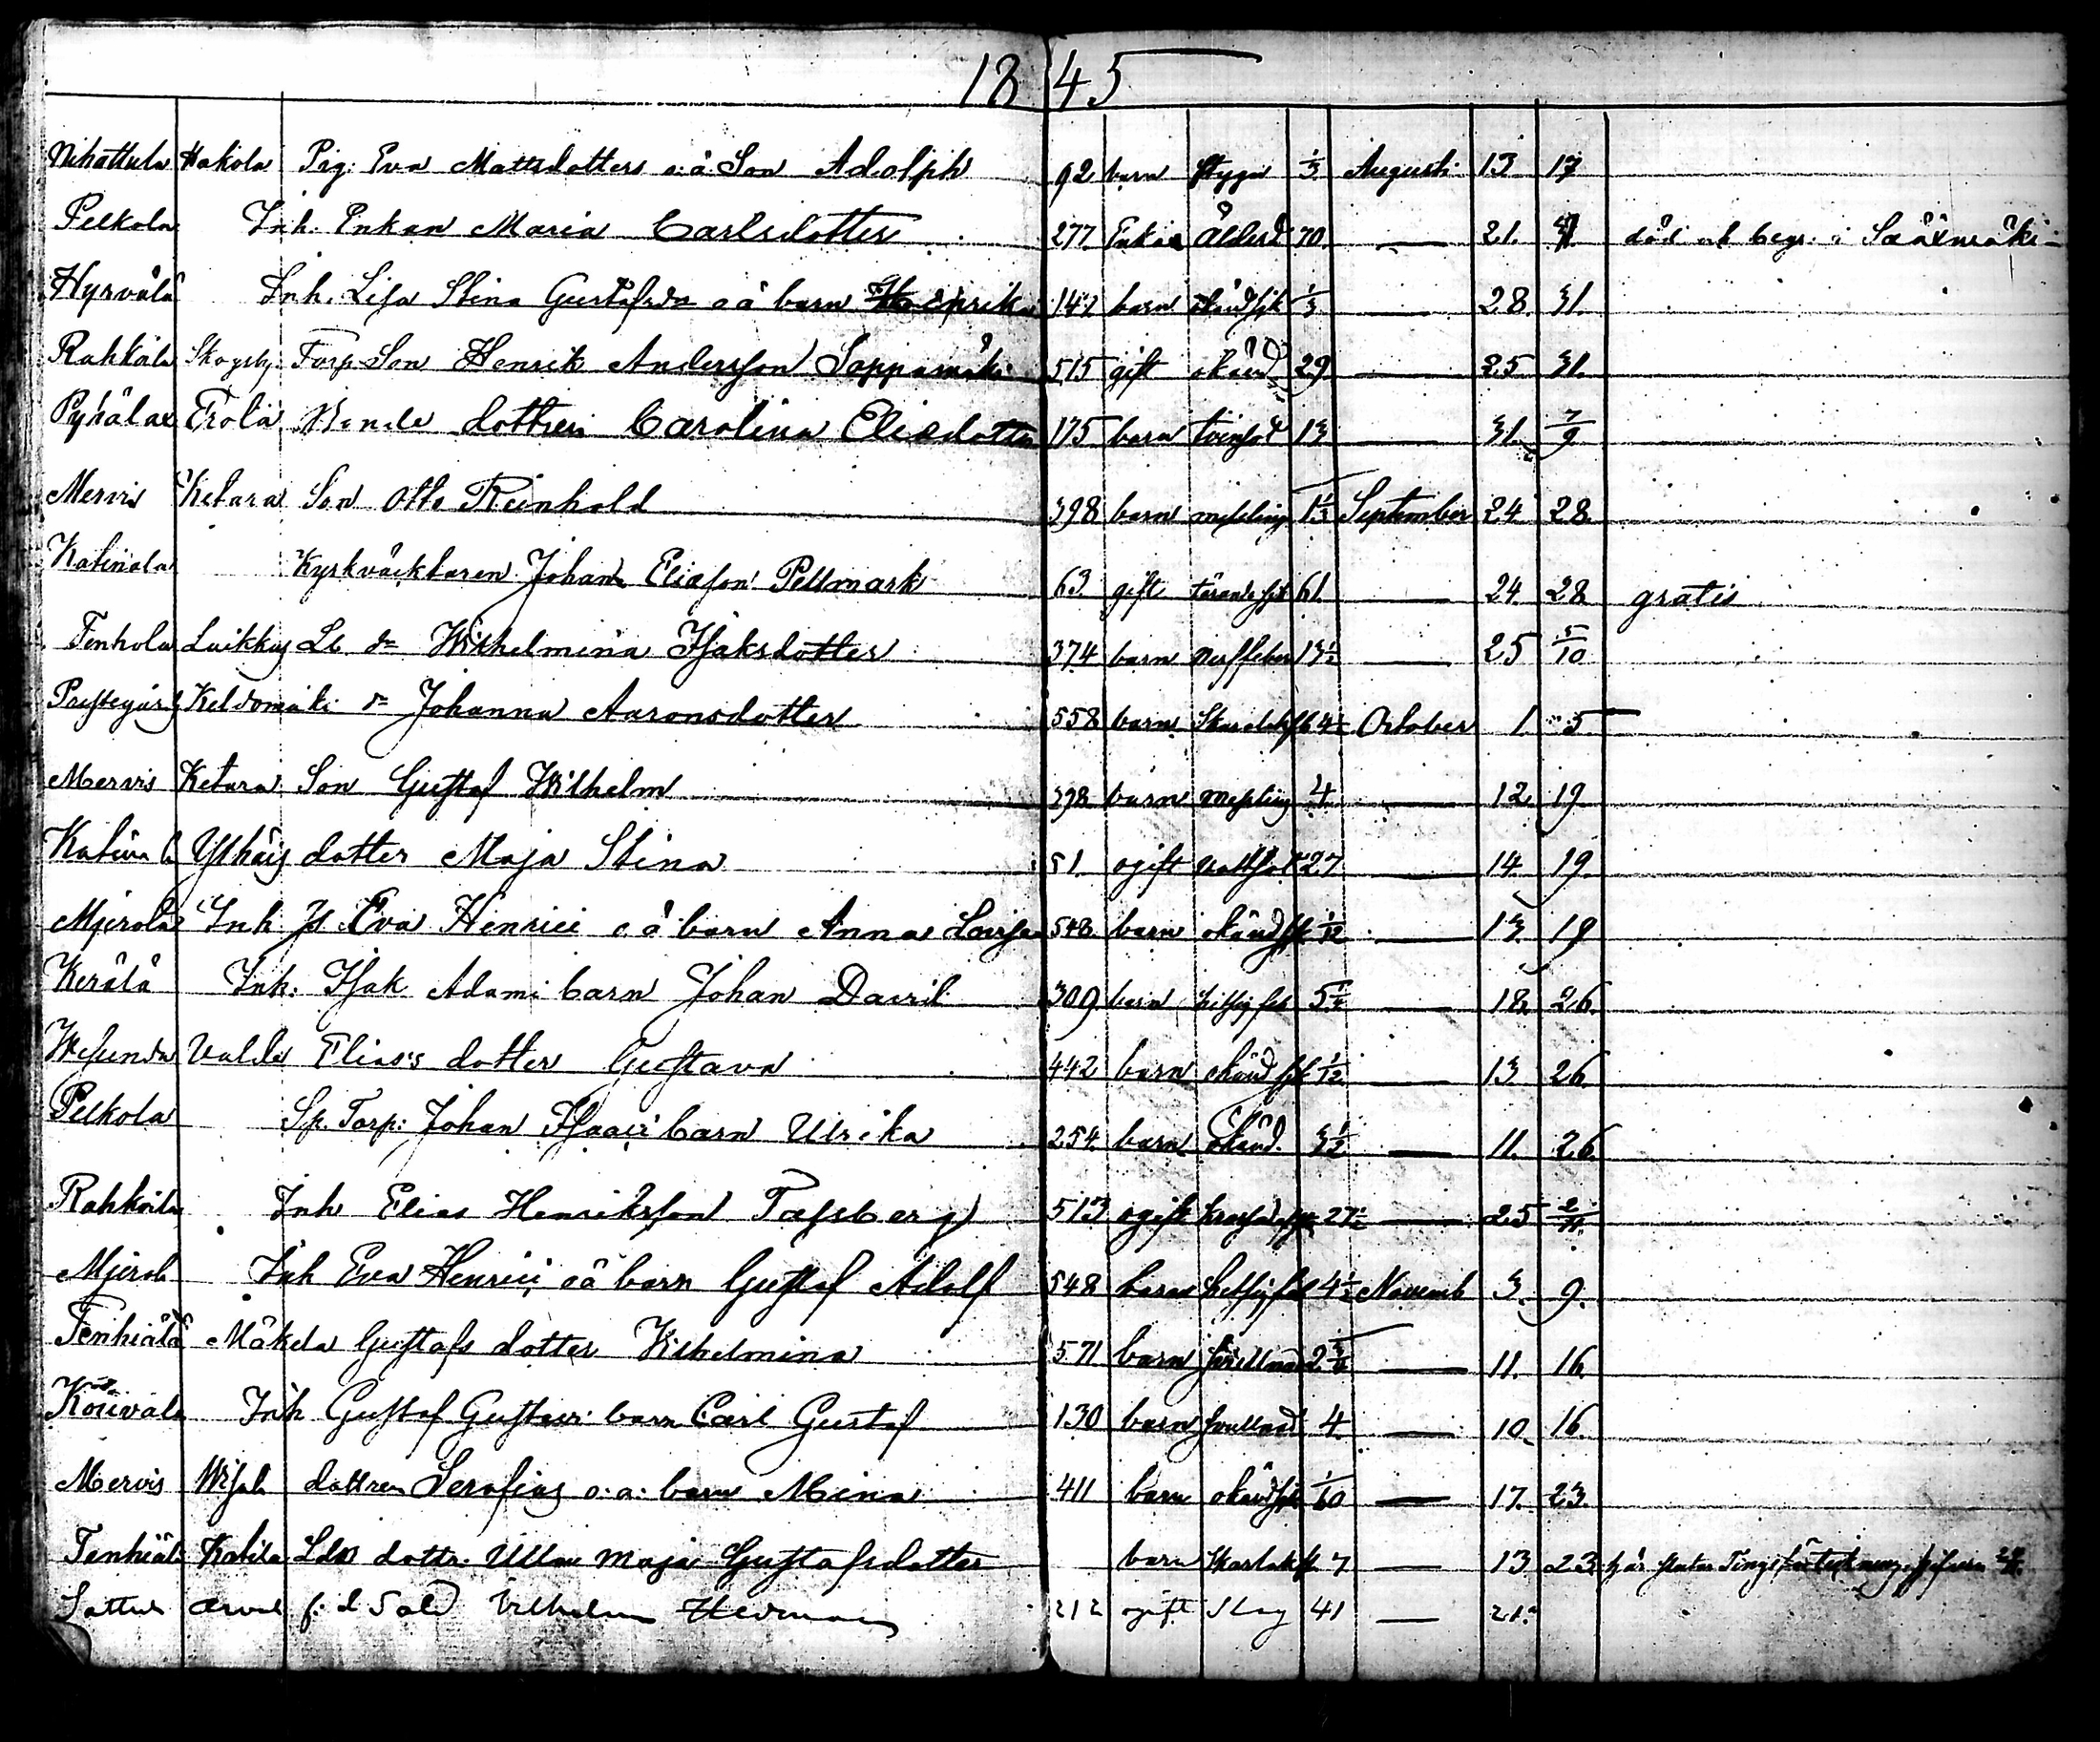 1845
Nihattula Hakola Pig: Eva Mattsdotters o: ä: Son Adolph 92 barn Stygn 1/3 Augusti 13 17
Pelkola Inh. Enkan Maria Carlsdotter 277 Enka Ålderd 70 — 21. död och begr. i Sääxmäki
Hyrvälä Inh. Lisa Stina Gustafsdr o ä barn Henrika 147 barn okänd sjk 1/3 — 28. 31.
Rahkoila Skogsby Torp. Son Henrik Andersson Soppamäki 515 gift okänd 29 — 25 31.
Pyhälax Erola dottren Carolina Eliædotter 175 barn tvinsot 13 — 31. 7/9
Mervis Ketara Son Otto Reinhold 398 barn messling 1 1/3 September 24 28
Katinala Kyrkväcktaren Johan Eliæson Pellmark 63 gift tärande sjk 61. — 24. 28 gratis
Tenhola Luikku Lb dr Wilhelmina Isaksdotter 374 barn Nerffeber 13 1/2 — 25 5/10
Prestegård Keldomäki dr Johanna Aaronsdotter 558 barn October 1. 5
Mervis Ketara Son Gustaf Wilhelm 398 barn messling 4 — 12. 19
Katina Ylhäis dotter Maja Stina 51 ogift Vattsot 27 — 14 19.
Mjerola Inh Js Eva Henrici o ä barn Anna Lovisa 548. barn okänd sjk 1/12 — 13. 19
Kerälä Inh. Isak Adami barn Johan David 309 barn hitsig feb 5 1/4 — 18. 26.
Wesunda Uulde Elias's dotter Gustava 442 barn okänd sjk 1/12 — 13 26.
Pelkola Sp. Torp: Johan Isaaci barn Ulrika 254. barn okänd. 3 1/2 — 11. 26.
Rahkoila Inh Elias Henriksson Tafsberg 513 ogift 27 1/2 — 25 2/11.
Mjerol Inh Eva Henrici o ä barn Gustaf Adolf 548 barn hetsig feb 4 1/2 Novemb 3. 9.
Tenhiälä Mäkelä Gustafs dotter Vilhelmina 571 barn 2 3/4 — 11. 16.
Koiivala Inh Gustaf Gustavi barn Carl Gustaf 130 barn svullnad 4 — 10. 16.
Mervis Wisal dottren Serafias o: ä: barn Mina 411 barn okänd sjk 1/10 — 17. 23.
Tenhiäl Katila Ldn dottr. Ulla Maja Gustafsdotter barn Skarlak 7 — 13 23
Sattul Arvel f. d Sold Vilhelm Hedman 212 ogift Slag 41 — 21.